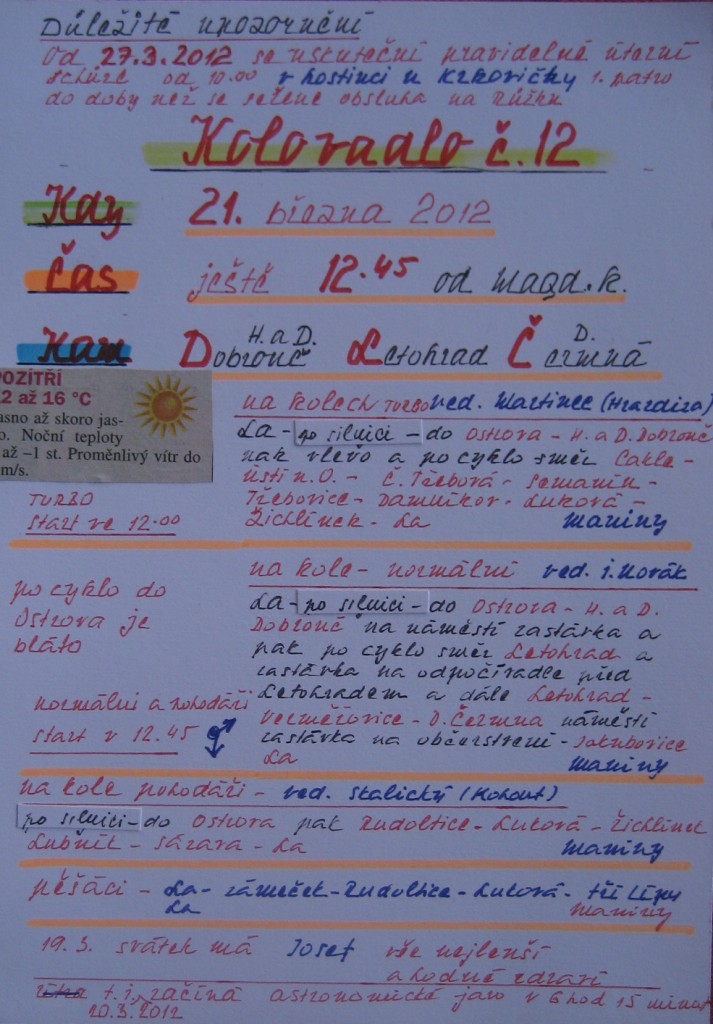 Důležité upozornění
Od 27.3.2012 se uskuteční pravidelné úterní
schůze od 10.00 v hostinci u Krkovičky 1. patro
do doby než se sežene obsluha na Růžku
Koloradlo č.12
Kdy 21. března 2012
Čas ještě 12.45 od Magd.k.
Kam Dobrouč H. a D. Letohrad Čermná D.
POZÍTŘÍ
2 až 16 °C
asno až skoro jas-
o. Noční teploty
až –1 st. Proměnlivý vítr do
m/s.
na kolech TURBO ved. Martinec (Hrazdira)
La - po silnici - do Ostrova - H. a D. Dobrouč
pak vlevo a po cyklo směr Cakle -
Ústí n.O. - Č. Třebová - Semanín -
Třebovice - Damníkov - Luková -
Žichlínek - La Maniny
TURBO
start ve 12.00
na kole - normální ved. j. Novák
La - po silnici - do Ostrova - H. a D.
Dobrouč na náměstí zastávka a
pak po cyklo směr Letohrad a
zastávka na odpočívadle před
Letohradem a dále Letohrad -
Verměřovice - D. Čermná náměstí
zastávka na občerstvení - Jakubovice
La Maniny
po cyklo do
Ostrova je
bláto
normální a pohodáři
start v 12.45
na kole pohodáři - ved. Skalický (Kohout)
po silnici - do Ostrova pak Rudoltice - Luková - Žichlínek
Lubník - Sázava - La Maniny
pěšáci - La - zámeček - Rudoltice - Luková - tři Lípy
La Maniny
19.3. svátek má Josef vše nejlepší
a hodně zdraví
zítra t.j. začíná astronomické jaro v 6 hod 15 minut
20.3.2012